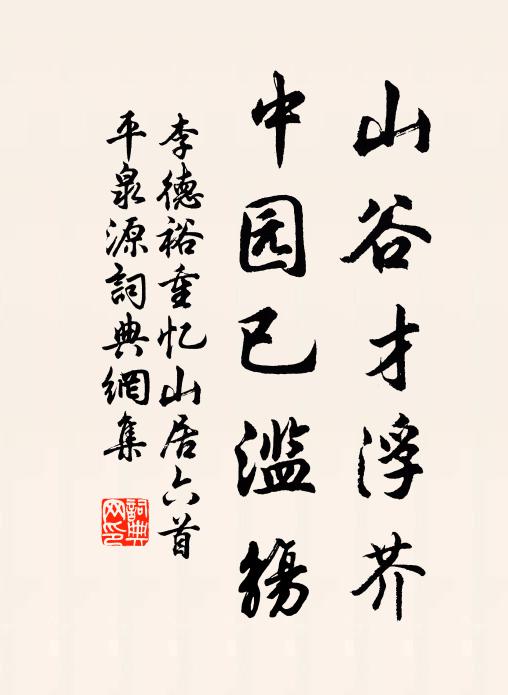 山谷才浮芥
中园已滥觞
李德裕重忆山居六首
平泉源詞典網集
詞典网印